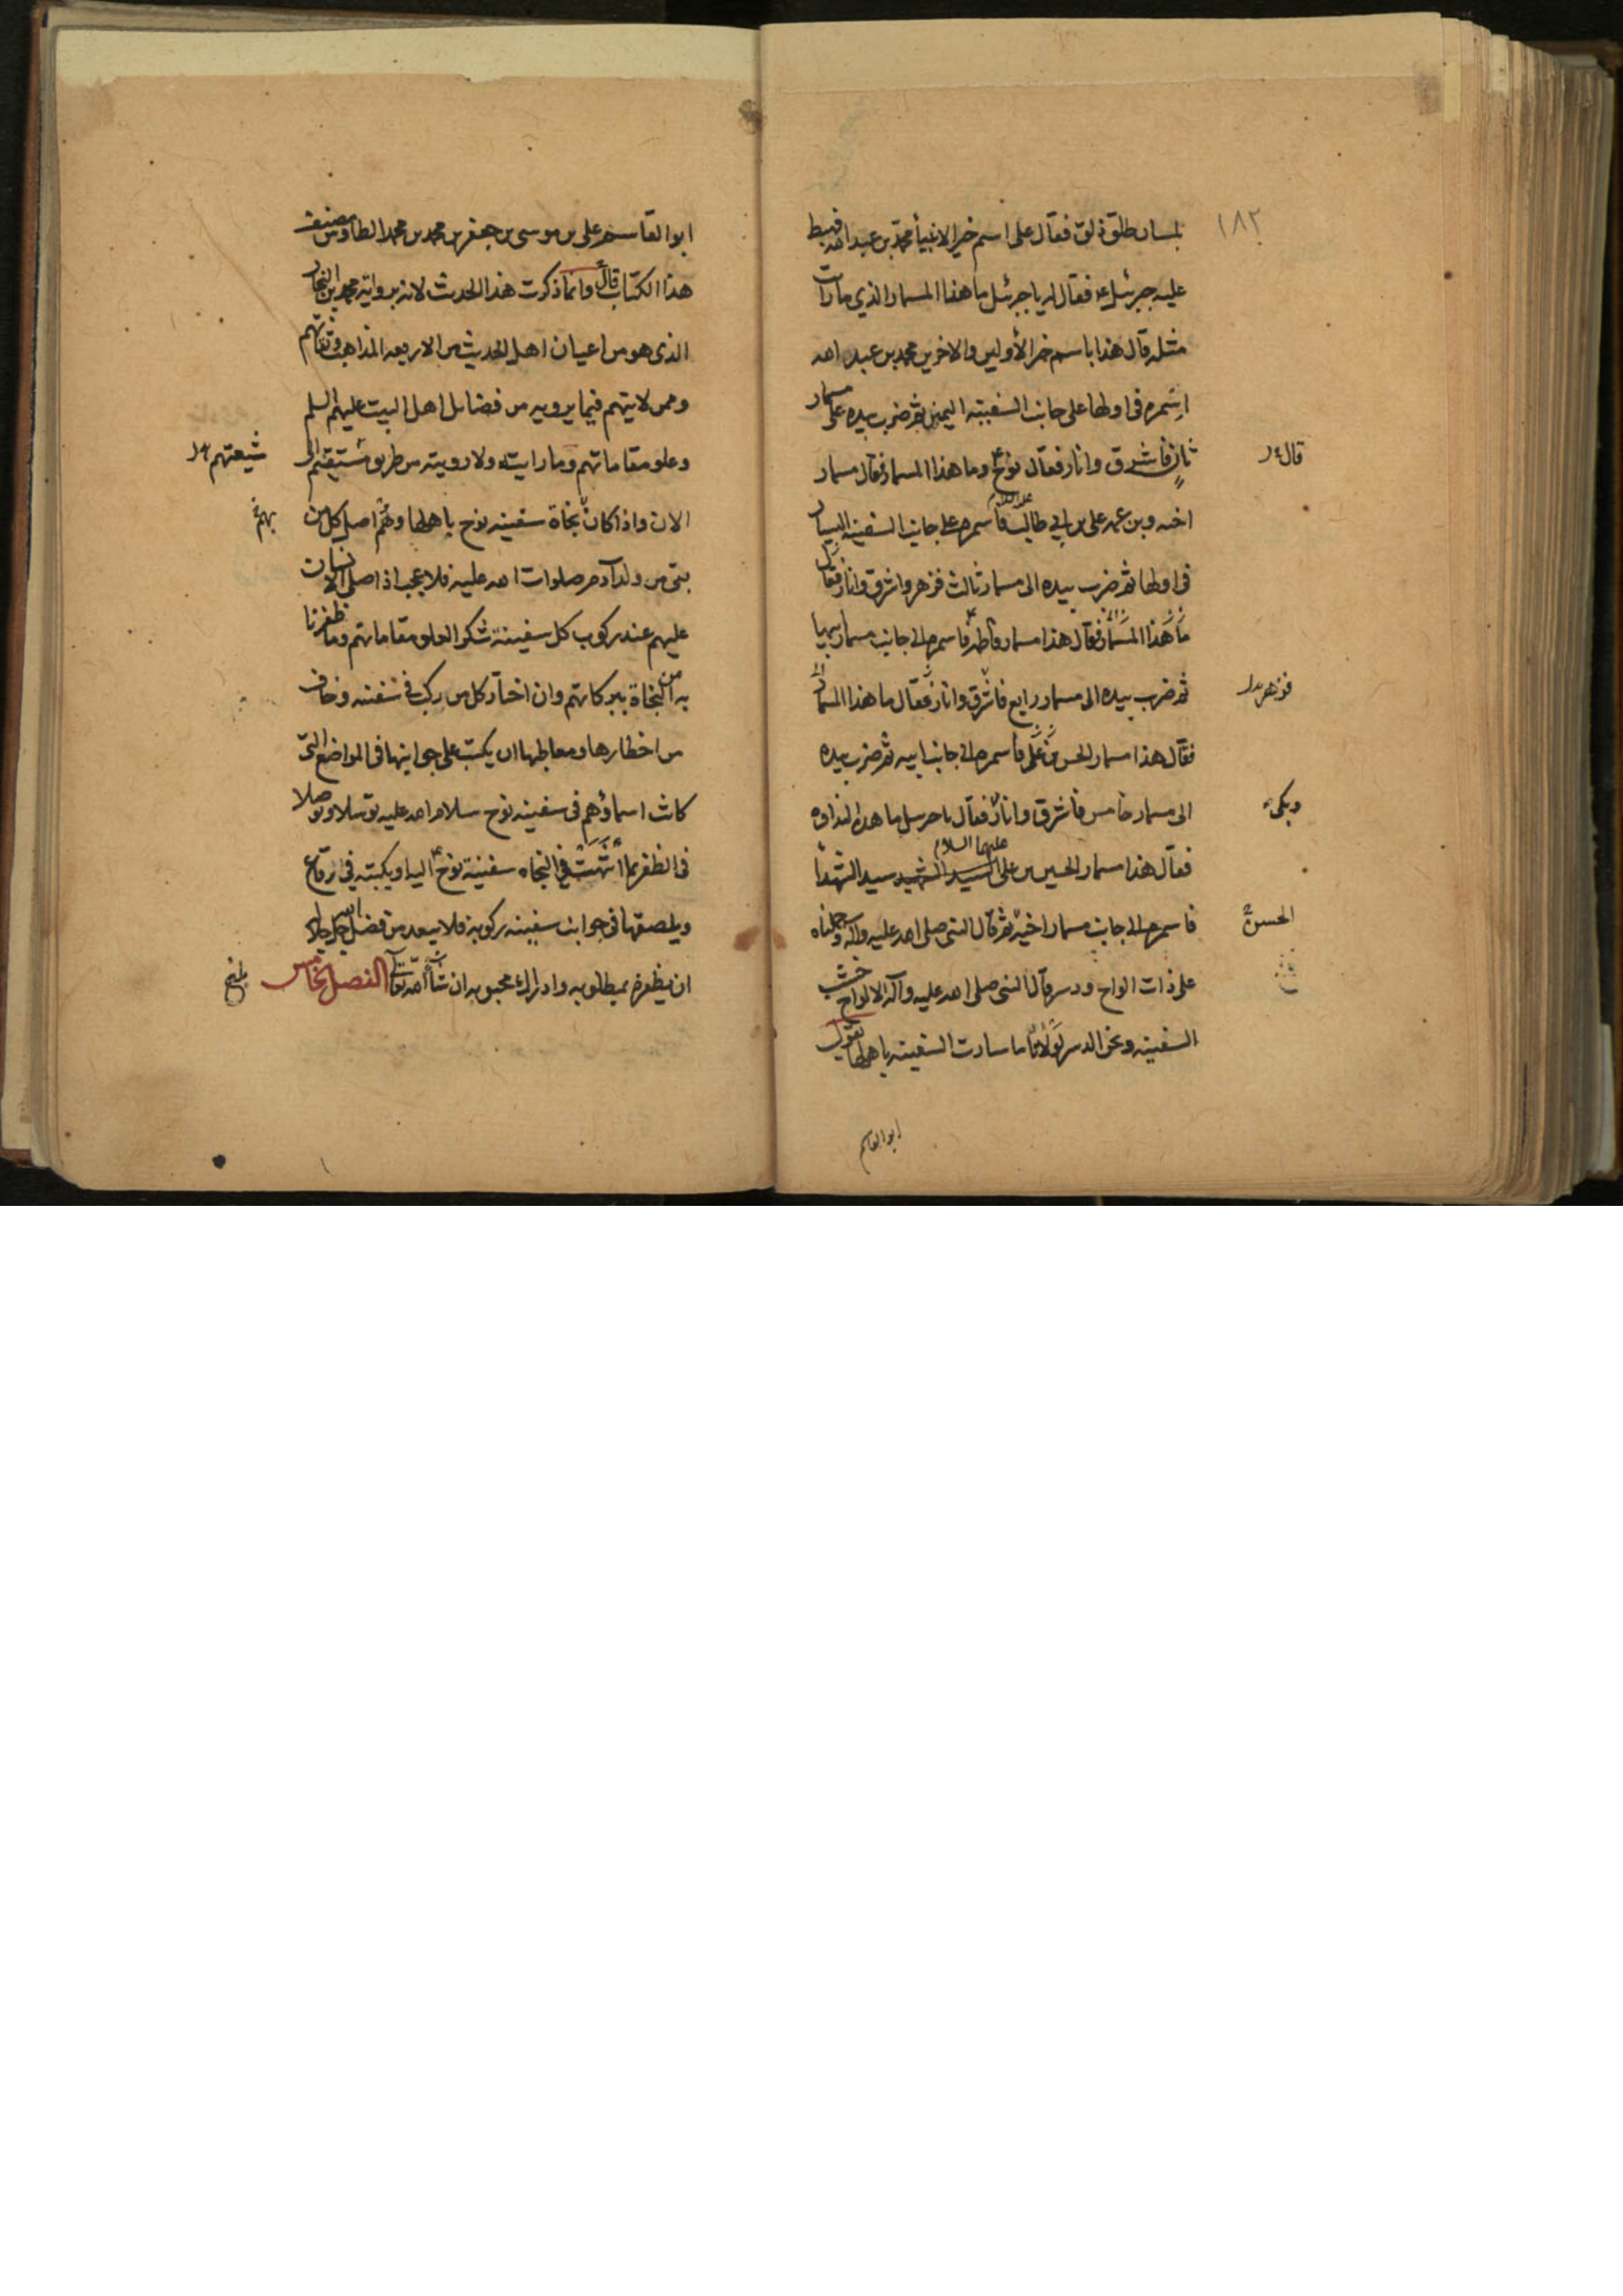 ١٨٢
بلسان طلق ذلق فقال على اسم خير الانبيا محمد بن عبد الله فهبط
عليه جبرئيل ع فقال له يا جبرئيل ما هذا المسمار الذي ما رايت
مثله قال هذا باسم خير الأولين والاخرين محمد بن عبد الله
اسمره في اولها على جانب السفينه اليمين ثم ضرب بيده على مسمار
ثانٍ فاشرق وانار فقال نوح ع وما هذا المسمار فقال مسمار
قال
اخيه وبن عمه علي بن ابي طالب عليه السلام فاسمره على جانب السفينه اليسار
في اولها ثم ضرب بيده الى مسمار ثالث فزهر واشرق وانار فقال
ما هذا المسمار فقال هذا مسمار فاطمة فاسمره الى جانب مسمار ابيها
ثم ضرب بيده الى مسمار رابع فاشرق وانار فقال ما هذا المسمار
فزهر
فقال هذا مسمار الحسن بن علي فاسمره الى جانب ابيه ثم ضرب بيده
الى مسمار خامس فاشرق وانار فقال يا جبرئيل ما هذه النداوه
وبكى
فقال هذا مسمار الحسين بن علي عليهما السلام السيد الشهيد سيد الشهدا
فاسمره الى جانب مسمار اخيه ثم قال النبي صلى الله عليه وآله وحملناه
الحسن
على ذات الواح ودسر قال النبي صلى الله عليه وآله الالواح خشب
السفينه ونحن الدسر لولانا ما سارت السفينه باهلها يقول
ابو القاسم
ابو القاسم علي بن موسى بن جعفر بن محمد بن محمد الطاوس مصنف
هذا الكتاب قال وانما ذكرت هذا الحديث لانه برواية محمد بن النجار
الذى هو من اعيان اهل الحديث من الاربعه المذاهب وثقاتهم
وممن لا يتهم فيما يرويه من فضائل اهل البيت عليهم السلم
وعلو مقاماتهم وما رايته ولا رويته من طريق شيعتهم الى
شيعتهم
الان واذا كان نجاة سفينه نوح باهلها وهم اصل كل من
بهم
بقى من ولد آدم صلوات الله عليه فلا عجب اذا صلى الانسان
عليهم عند ركوب كل سفينة شكرا لعلو مقاماتهم وما ظفرنا
به من النجاة ببركاتهم وان اختار كل من ركب في سفينه وخاف
من اخطارها ومعاطبها ان يكتب على جوانبها في المواضع التى
كانت اسماؤهم في سفينه نوح سلام الله عليه توسلا وتوصلا
في الظفر بما انتهت في النجاه سفينة نوح ع اليه او يكتبه في رقاع
ويلصقها في جوانب سفينه ركوبه فلا يبعد من فضل الله جل جلاله
ان يظفره بمطلوبه وادراك محبوبه ان شآ الله تعالى الفصل الخامس